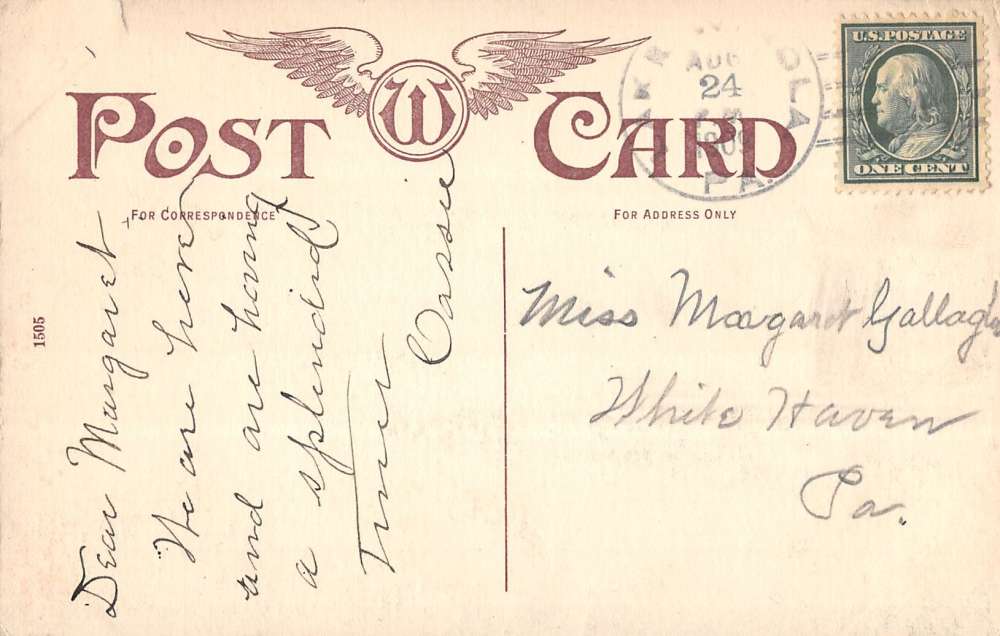 POST W CARD
FOR CORRESPONDENCE
FOR ADDRESS ONLY
U.S. POSTAGE
ONE CENT
AUG
24
1909
PA.
1505
Dear Margaret
We are here
and are having
a splendid
Time
Cassie
Miss Margaret Gallagher
White Haven
Pa.